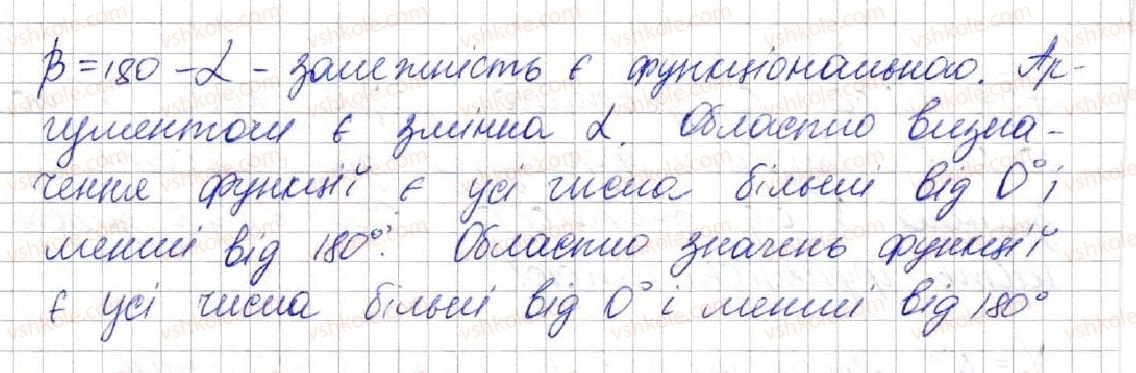 β = 180 - α - залежність є функціональною. Ар-
гументом є змінна α. Областю визна-
чення функції є усі числа більші від 0° і
менші від 180°. Областю значень функції
є усі числа більші від 0° і менші від 180°